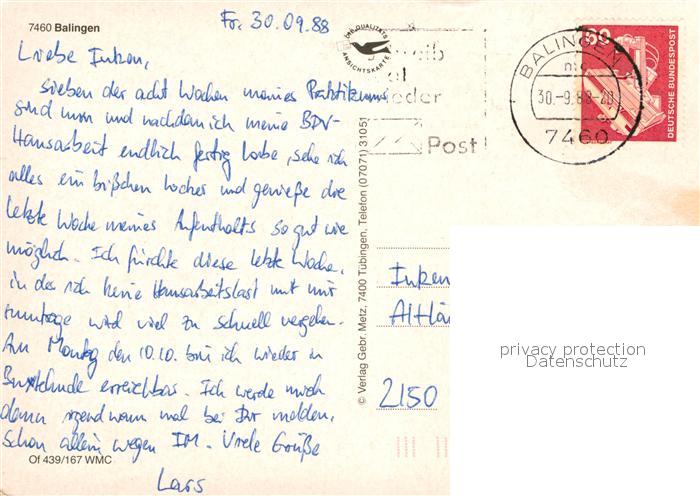 7460 Balingen
Fr, 30.09.88
Liebe Inken,
sieben der acht Wochen meines Praktikums
sind nun um und nachdem ich meine BDV-
Hausarbeit endlich fertig habe, sehe ich
alles ein bißchen locker und genieße die
letzte Woche meines Aufenthalts so gut wie
möglich. Ich fürchte diese letzte Woche,
in der ich keine Hausarbeitslast mit mir
rumtrage wird viel zu schnell vergehen.
Am Montag den 10.10. bin ich wieder in
Buxtehude erreichbar. Ich werde mich
dann irgendwann mal bei Dir melden,
schon allein wegen IM. Viele Grüße
Lars
Of 439/167 WMC
© Verlag Gebr. Metz, 7400 Tübingen, Telefon (07071) 31051
QUALITÄTS
ANSICHTSKARTE
Schreib
mal
wieder
Post
BALINGEN 1
30.-9.88-20
7460
60
DEUTSCHE BUNDESPOST
Inken
Altlän
2150
privacy protection
Datenschutz